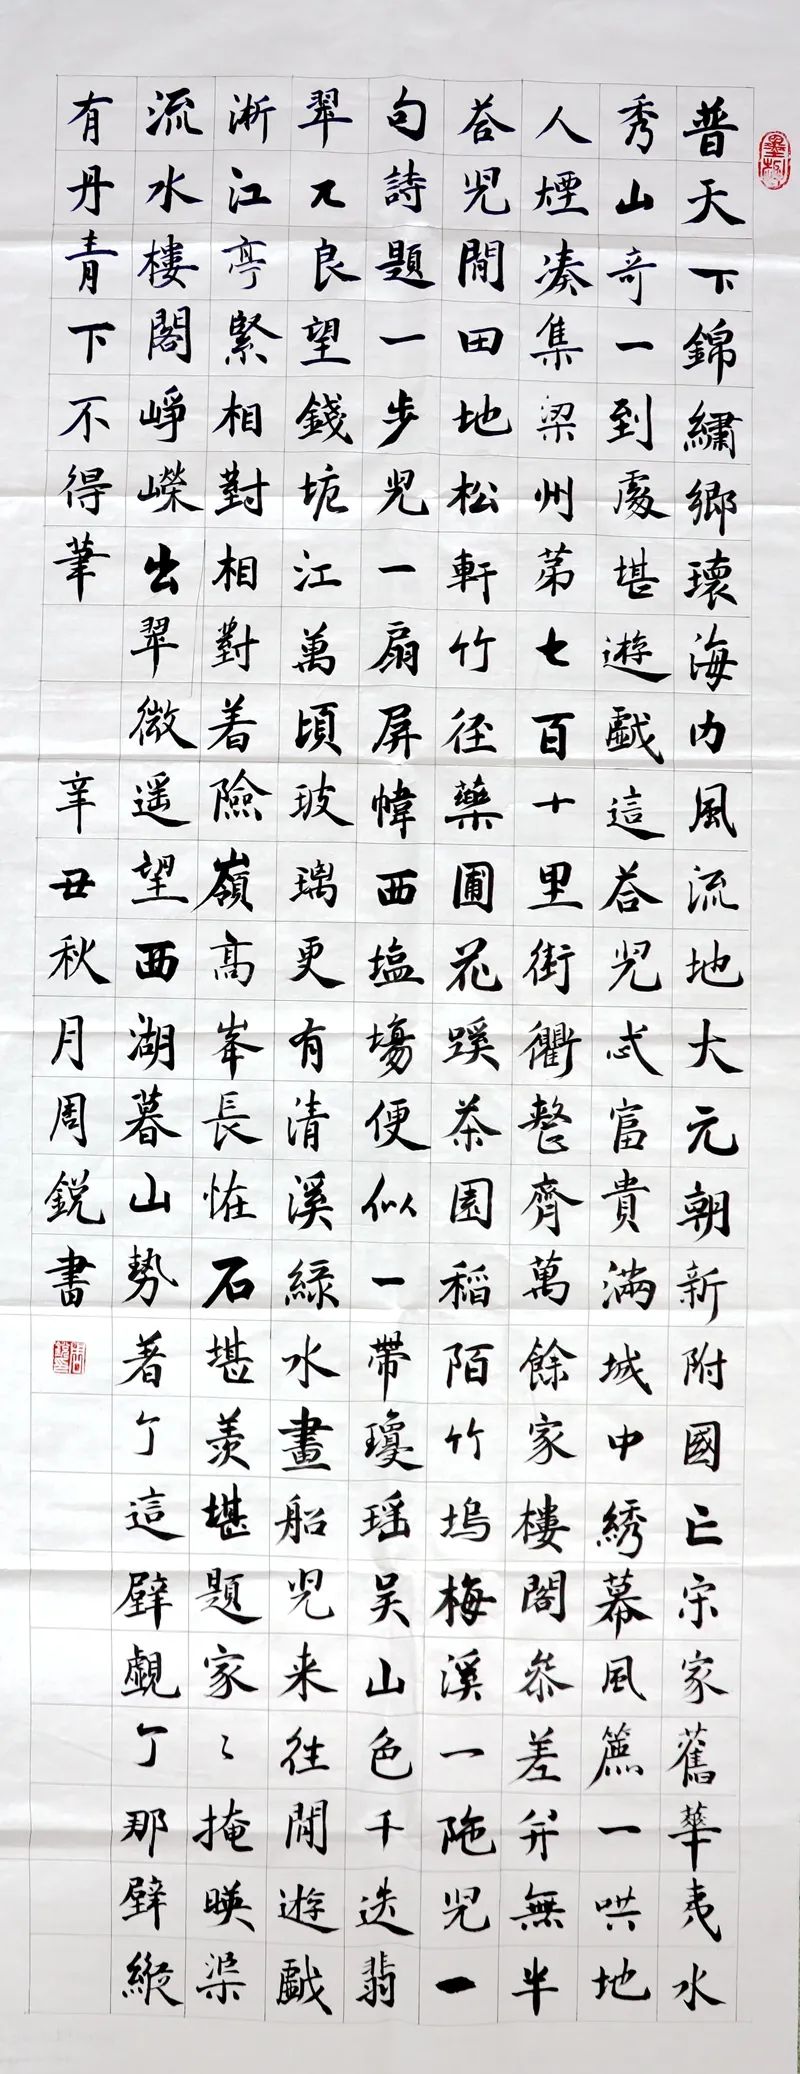 普天下錦繡鄉環海内風流地大元朝新附國亡宋家舊華夷水
秀山奇一到處堪遊戲這荅兒忒富貴滿城中綉幕風簾一哄地
人煙凑集梁州第七百十里街衢整齊萬餘家樓閣叅差并無半
荅兒閒田地松軒竹径藥圃花蹊茶園稻陌竹塢梅溪一陁兒一
句詩題一步兒一扇屏幃西塩場便似一帶瓊瑶吴山色千迭翡
翠兀良望錢塘江萬頃玻璃更有清溪綠水畫船兒来往閒遊戲
淅江亭緊相對相對着險嶺高峯長怪石堪羨堪題家〻掩暎渠
流水樓閣峥嶸出翠微遥望西湖暮山勢著了這壁覷了那壁縱
有丹青下不得筆
辛丑秋月周銳書